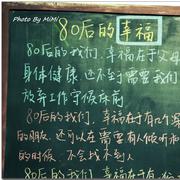 Photo By MiMi
80后的幸福
80后的我们,幸福在于父母
身体健康,还不到需要我们
放弃工作守候床前
80后的我们,幸福在于有个深
的朋友,还可以在需要有人倾听
的时候,不会找不到人
80后的我们,幸福在于有